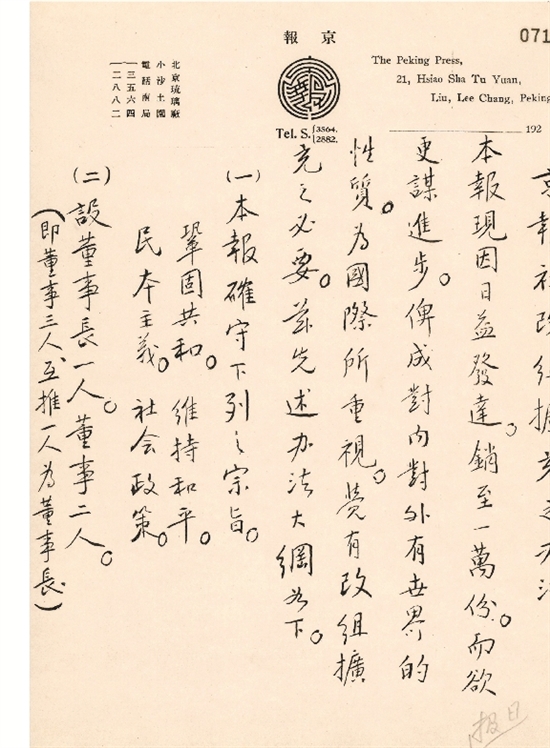 京報
071
The Peking Press,
21, Hsiao Sha Tu Yuan,
Liu, Lee Chang, Peking
Tel. S. {3564. 2882.
192
北京琉璃廠
小沙土園
電話南局
三五六四
二八八二
京報社改組擴充之办法
本報現因日益發達。銷至一萬份。而欲
更謀進步。俾成對内對外有世界的
性質。為國際所重視。覺有改組擴
充之必要。茲先述办法大綱如下。
(一)本報確守下列之宗旨。
鞏固共和。維持和平。
民本主義。社会政策。
(二)設董事長一人。董事二人。
(即董事三人,互推一人為董事長)